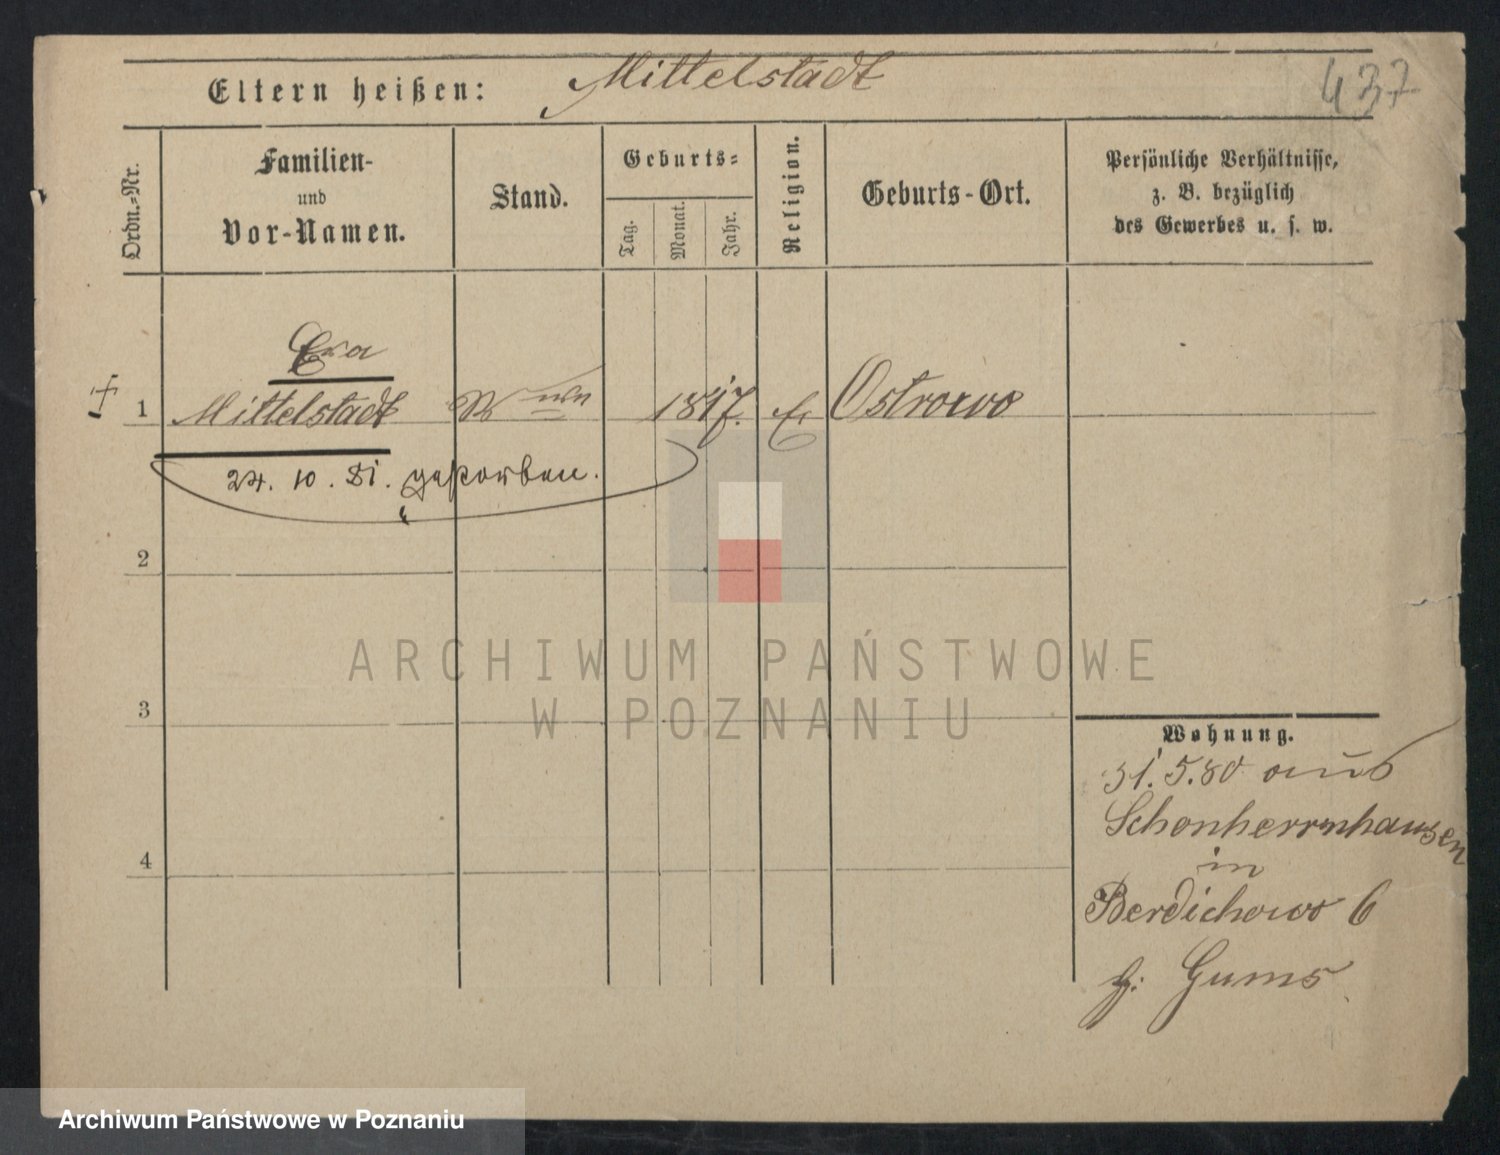 Eltern heißen: Mittelstädt
437
Ordn.-Nr.
Familien-
und
Vor-Namen.
Stand.
Geburts-
Tag.
Monat.
Jahr.
Religion.
Geburts-Ort.
Persönliche Verhältnisse,
z. B. bezüglich
des Gewerbes u. s. w.
Eva
† 1 Mittelstädt Wwe 1817. E. Ostrowo
24. 10. 81. gestorben.
2
3
4
Wohnung.
31. 5. 80 aus
Schonherrnhausen
in
Berdichowo 6
b: Gums
ARCHIWUM PAŃSTWOWE
W POZNANIU
Archiwum Państwowe w Poznaniu